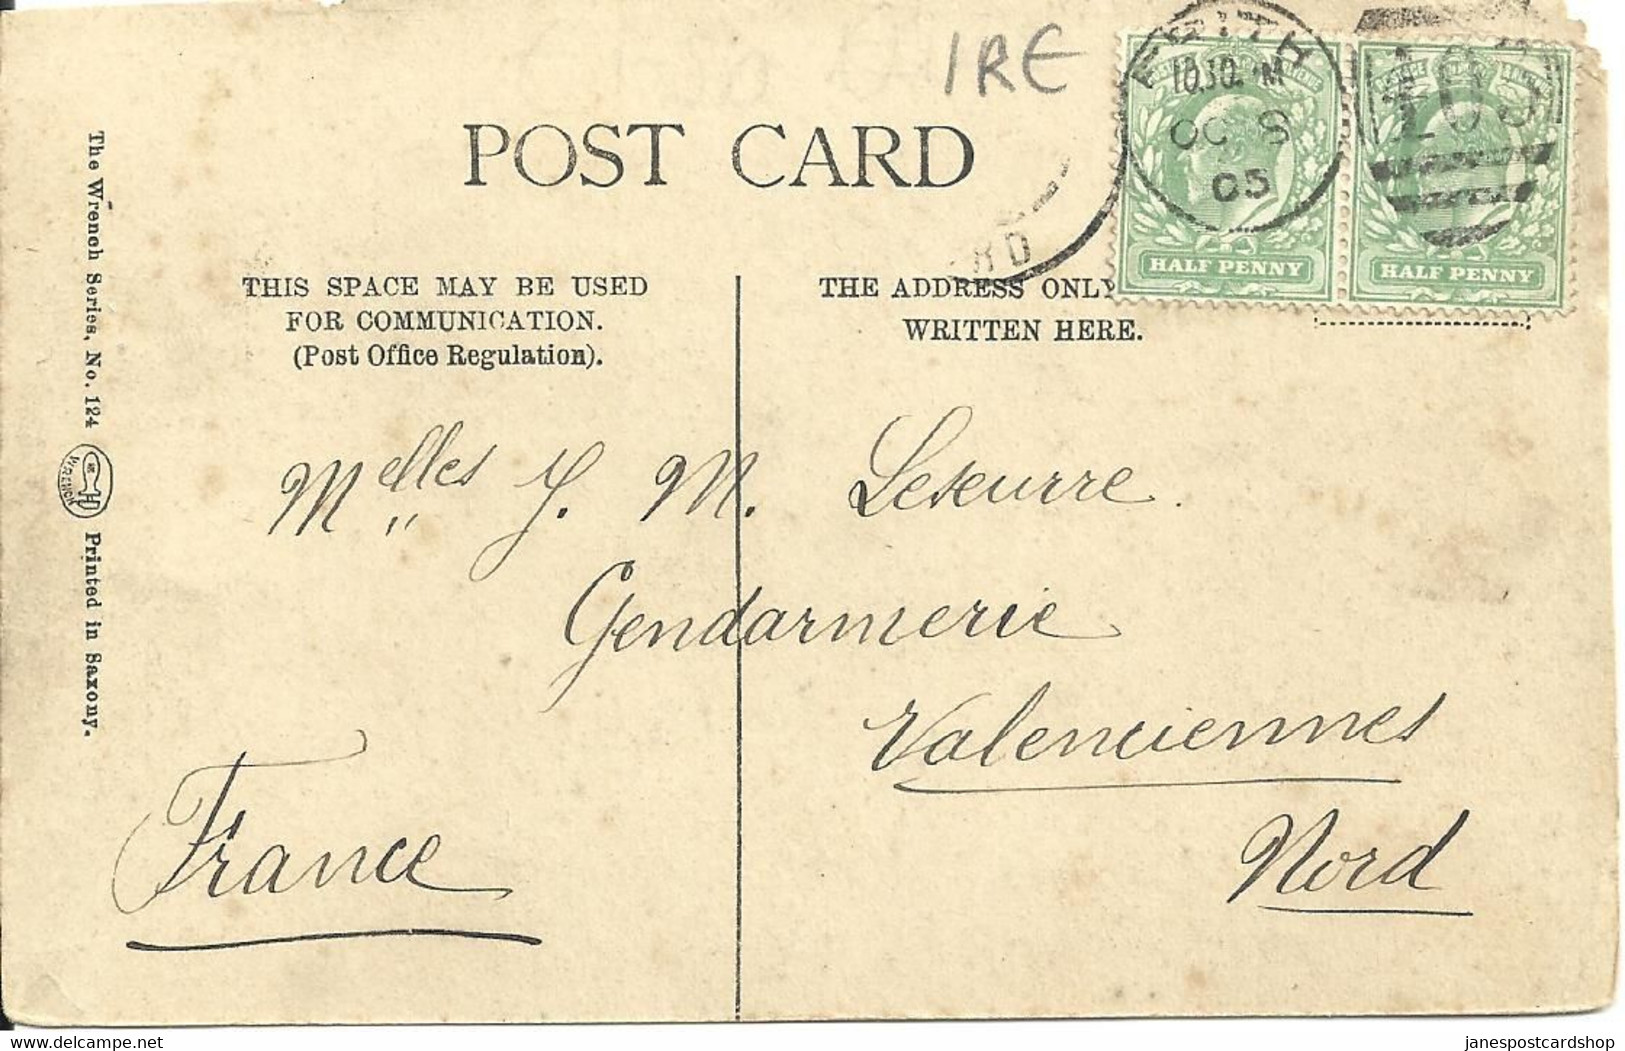 IRE
10.30. M
OC 8
05
103
POST CARD
HALF PENNY
HALF PENNY
THIS SPACE MAY BE USED
FOR COMMUNICATION.
(Post Office Regulation).
THE ADDRESS ONLY
WRITTEN HERE.
The Wrench Series, No. 124
WRENCH
Printed in Saxony.
Melles J. M. Leseurre.
Gendarmerie
Valenciennes
Nord
France
janespostcardshop